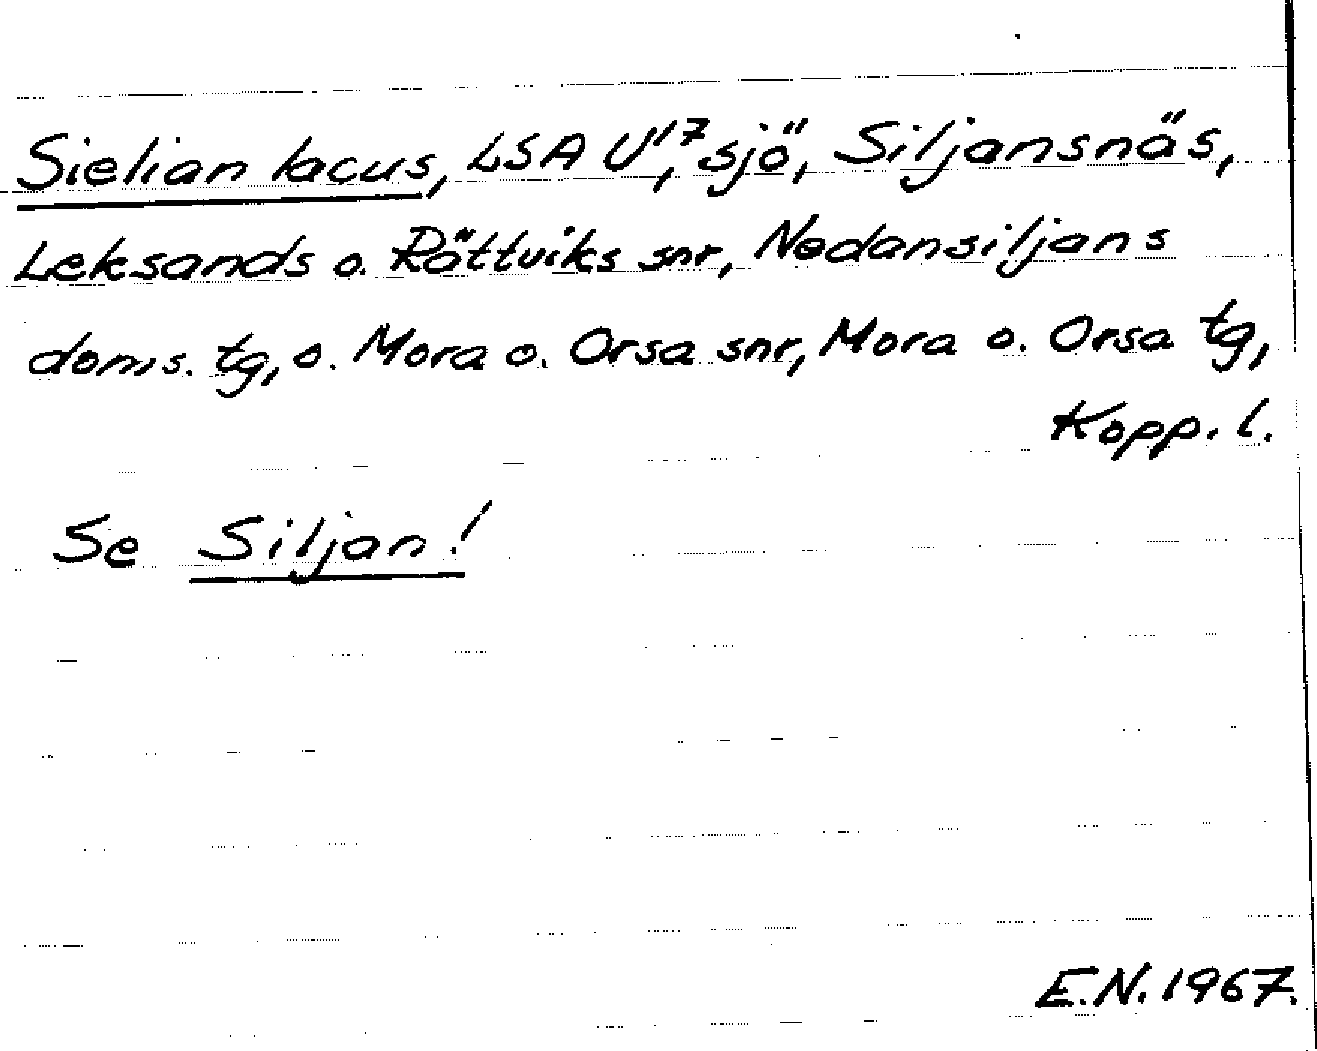 Sielian lacus, LSA U'17, sjö, Siljansnäs,
Leksands o. Rättviks snr, Nedansiljans
doms. tg, o. Mora o. Orsa snr, Mora o. Orsa tg,
Kopp. l.
Se Siljan!
E.N. 1967.